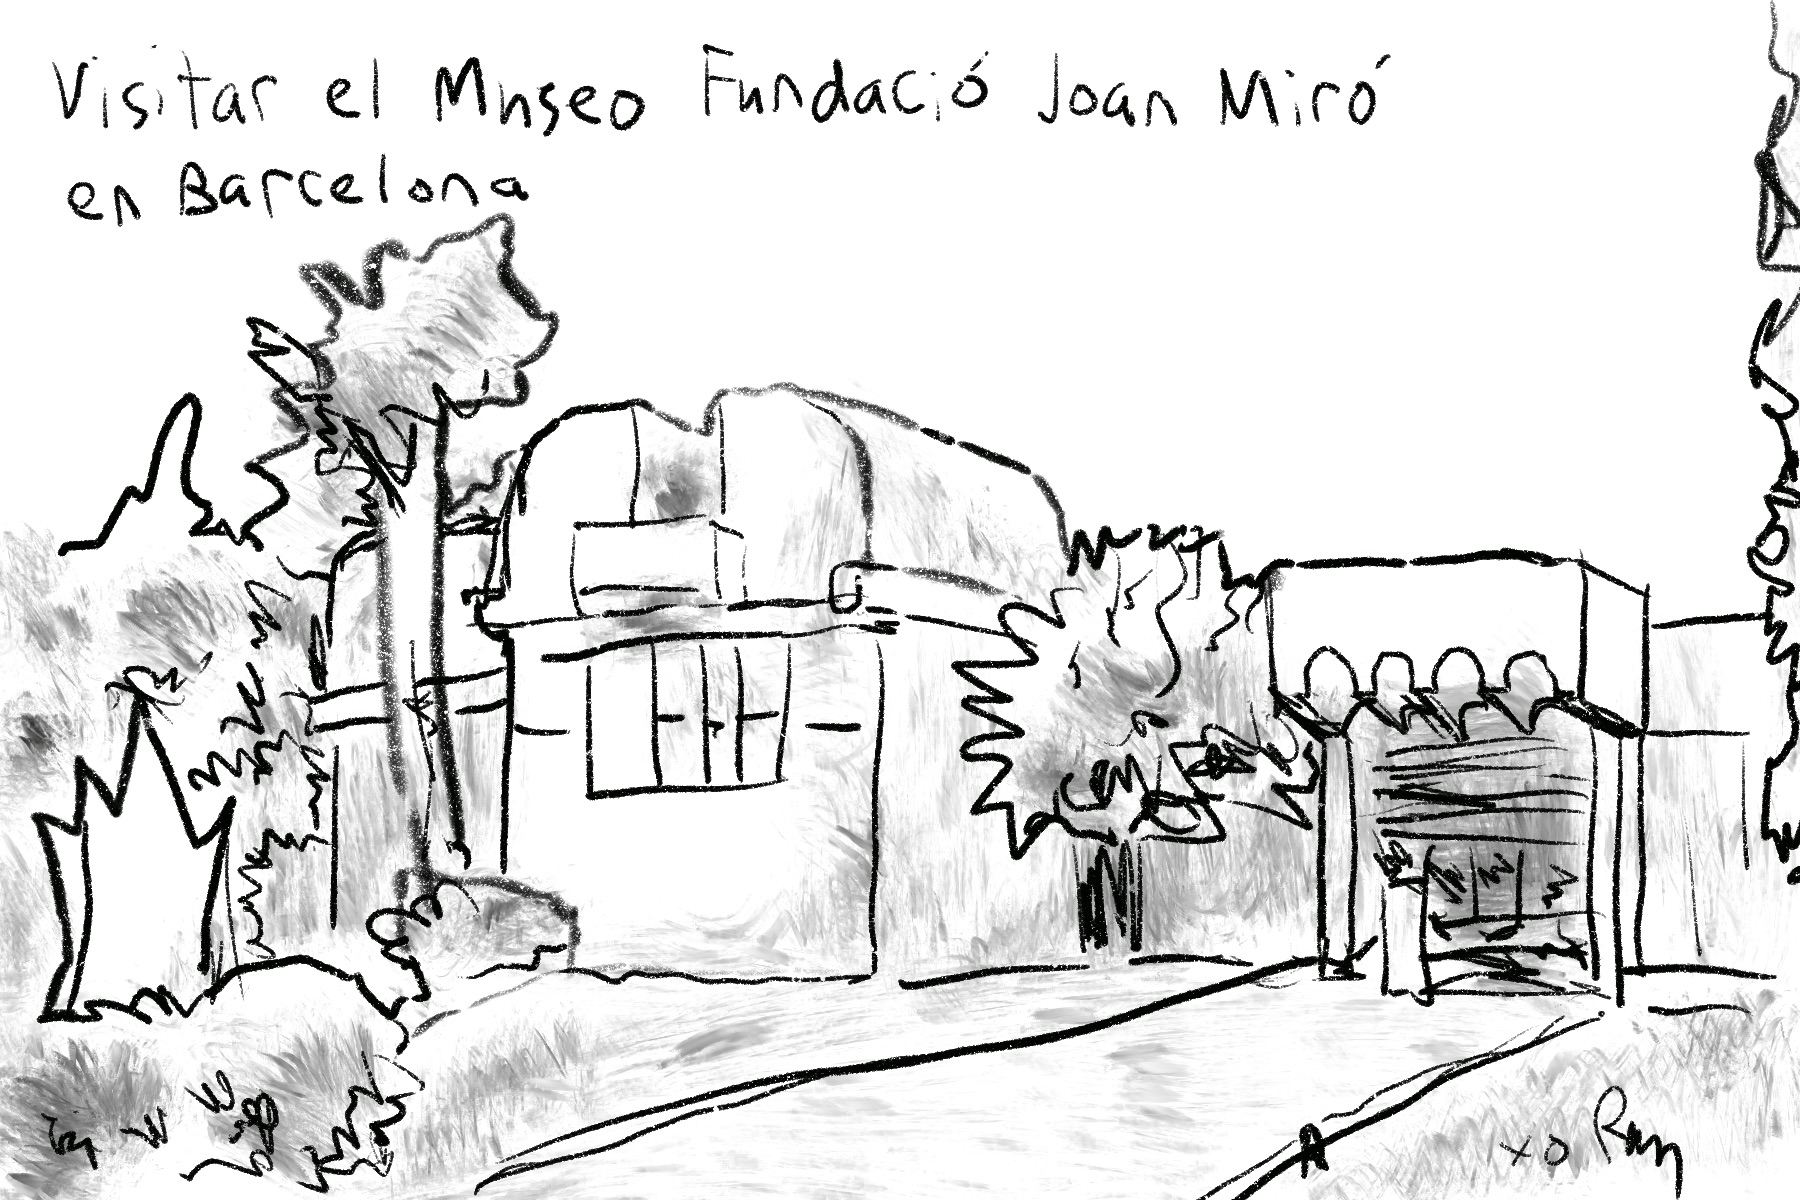 Visitar el Museo Fundació Joan Miró
en Barcelona
xo Ray